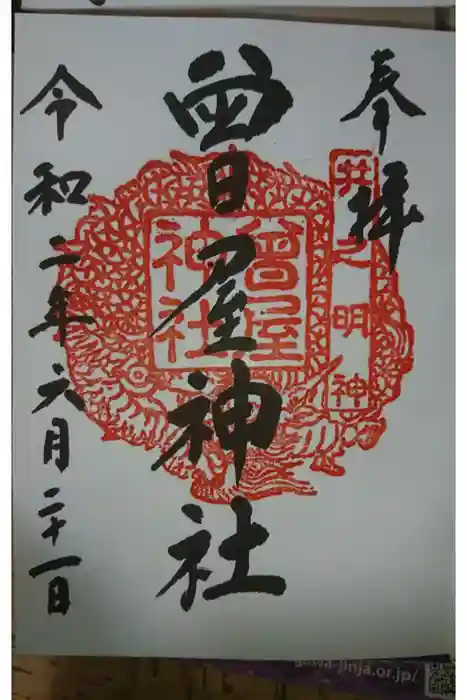 奉拝
井之明神
曾屋神社
曾屋
神社
令和二年六月二十一日
gawa-jinja.or.jp/